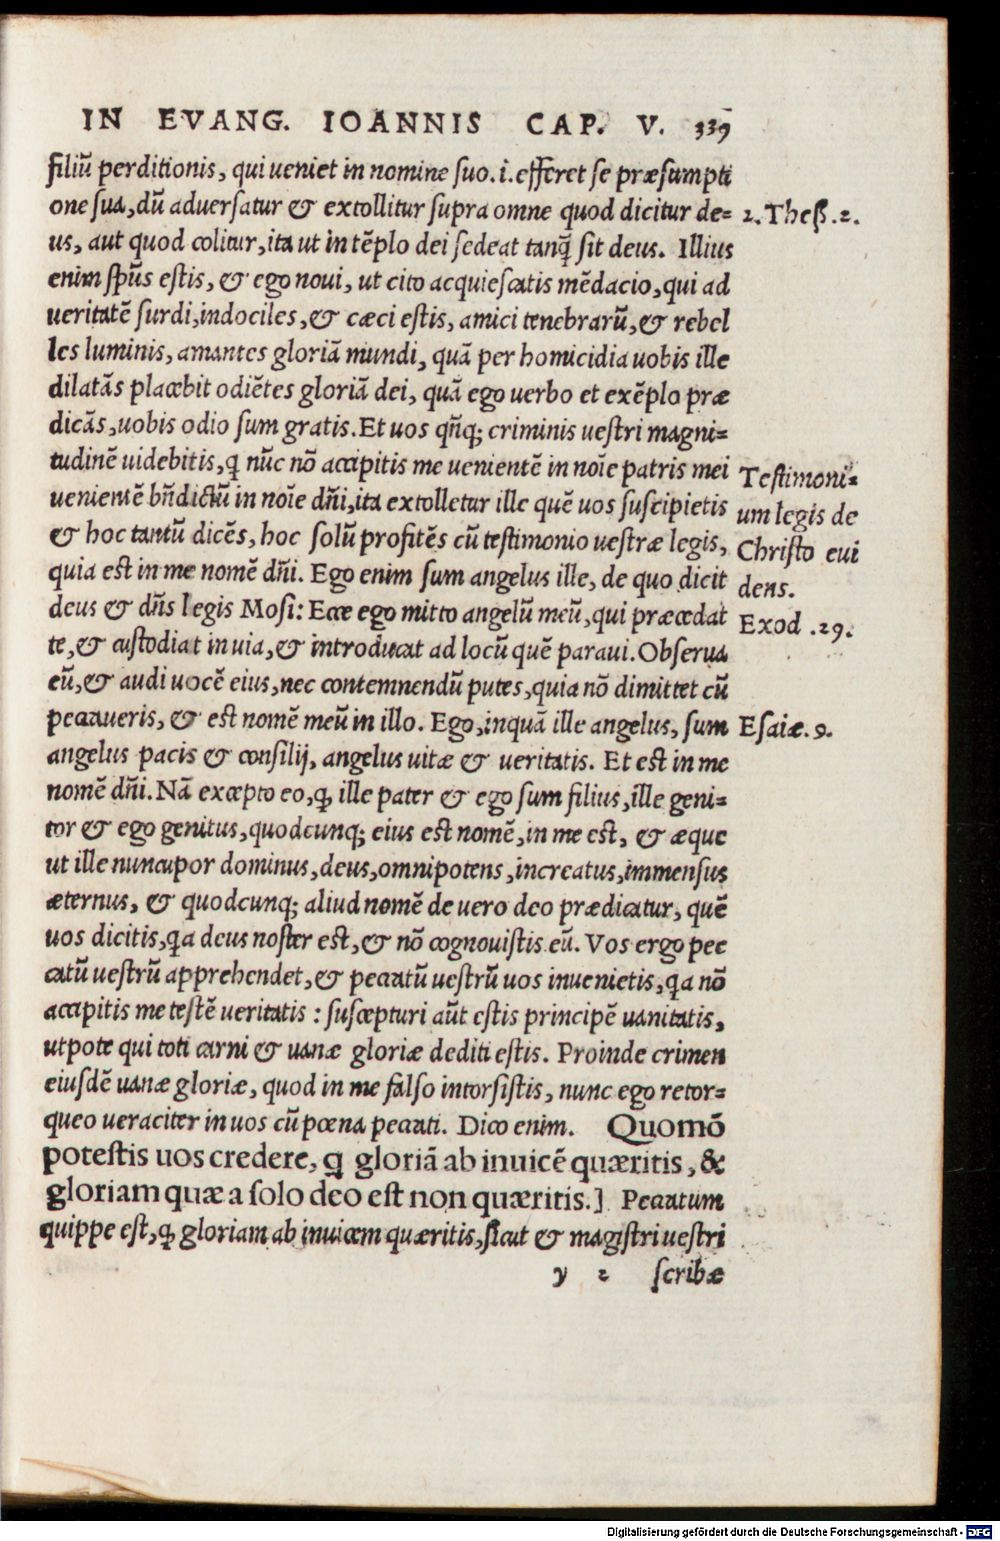 IN EVANG. IOANNIS CAP. V. 339
filiũ perditionis, qui ueniet in nomine suo. i. efferet se præsumpti
one sua, dũ aduersatur & extollitur supra omne quod dicitur de=
2. Thess. 2.
us, aut quod colitur, ita ut in tẽplo dei sedeat tanq̃ sit deus. Illius
enim sp̃us estis, & ego noui, ut cito acquiescatis mẽdacio, qui ad
ueritatẽ surdi, indociles, & cæci estis, amici tenebrarũ, & rebel
les luminis, amantes gloriã mundi, quã per homicidia uobis ille
dilatãs placebit odiẽtes gloriã dei, quã ego uerbo et exẽplo præ
dicãs, uobis odio sum gratis. Et uos qñq; criminis uestri magni=
tudinẽ uidebitis, ꝙ nũc nõ accipitis me uenientẽ in noĩe patris mei
Testimoni=
uenientẽ bñdictũ in noĩe dñi, ita extolletur ille quẽ uos suscipietis
um legis de
& hoc tantũ dicẽs, hoc solũ profitẽs cũ testimonio uestræ legis,
Christo eui
quia est in me nomẽ dñi. Ego enim sum angelus ille, de quo dicit
dens.
deus & dñs legis Mosi: Ecce ego mitto angelũ meũ, qui præcedat
Exod. 29.
te, & custodiat in uia, & introducat ad locũ quẽ paraui. Obserua
eũ, & audi uocẽ eius, nec contemnendũ putes, quia nõ dimittet cũ
peccaueris, & est nomẽ meũ in illo. Ego, inquã ille angelus, sum
Esaiæ. 9.
angelus pacis & consilij, angelus uitæ & ueritatis. Et est in me
nomẽ dñi. Nã excepto eo, ꝙ ille pater & ego sum filius, ille geni=
tor & ego genitus, quodcunq; eius est nomẽ, in me est, & æque
ut ille nuncupor dominus, deus, omnipotens, increatus, immensus
æternus, & quodcunq; aliud nomẽ de uero deo prædicatur, quẽ
uos dicitis, q̃a deus noster est, & nõ cognouistis eũ. Vos ergo pec
catũ uestrũ apprehendet, & peccatũ uestrũ uos inuenietis, q̃a nõ
accipitis me testẽ ueritatis : suscepturi aũt estis principẽ uanitatis,
utpote qui toti carni & uanæ gloriæ dediti estis. Proinde crimen
eiusdẽ uanæ gloriæ, quod in me falso intorsistis, nunc ego retor=
queo ueraciter in uos cũ pœna peccati. Dico enim. Quomõ
potestis uos credere, ꝙ gloriã ab inuicẽ quæritis, &
gloriam quæ a solo deo est non quæritis.] Peccatum
quippe est, ꝙ gloriam ab inuicem quæritis, sicut & magistri uestri
y 2 scribæ
Digitalisierung gefördert durch die Deutsche Forschungsgemeinschaft - DFG